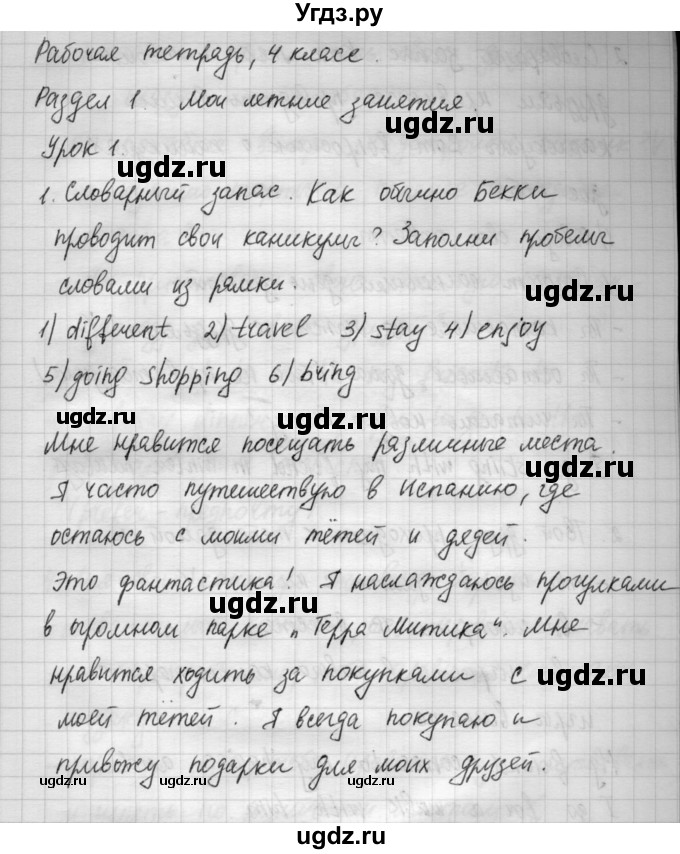 Угдз.ру
Рабочая тетрадь, 4 класс.
Раздел 1. Мои летние занятия.
Урок 1.
1. Словарный запас. Как обычно Бекки
проводит свои каникулы? Заполни пробелы
словами из рамки.
1) different 2) travel 3) stay 4) enjoy
5) going shopping 6) bring
Мне нравится посещать различные места.
Я часто путешествую в Испанию, где
остаюсь с моими тётей и дядей.
Это фантастика! Я наслаждаюсь прогулками
в огромном парке „Терра Митика“. Мне
нравится ходить за покупками с
моей тётей. Я всегда покупаю и
привожу подарки для моих друзей.
ugdz.ru
ugdz.ru
ugdz.ru
ugdz.ru
ugdz.ru
ugdz.ru
ugdz.ru
ugdz.ru
ugdz.ru
ugdz.ru
ugdz.ru
ugdz.ru